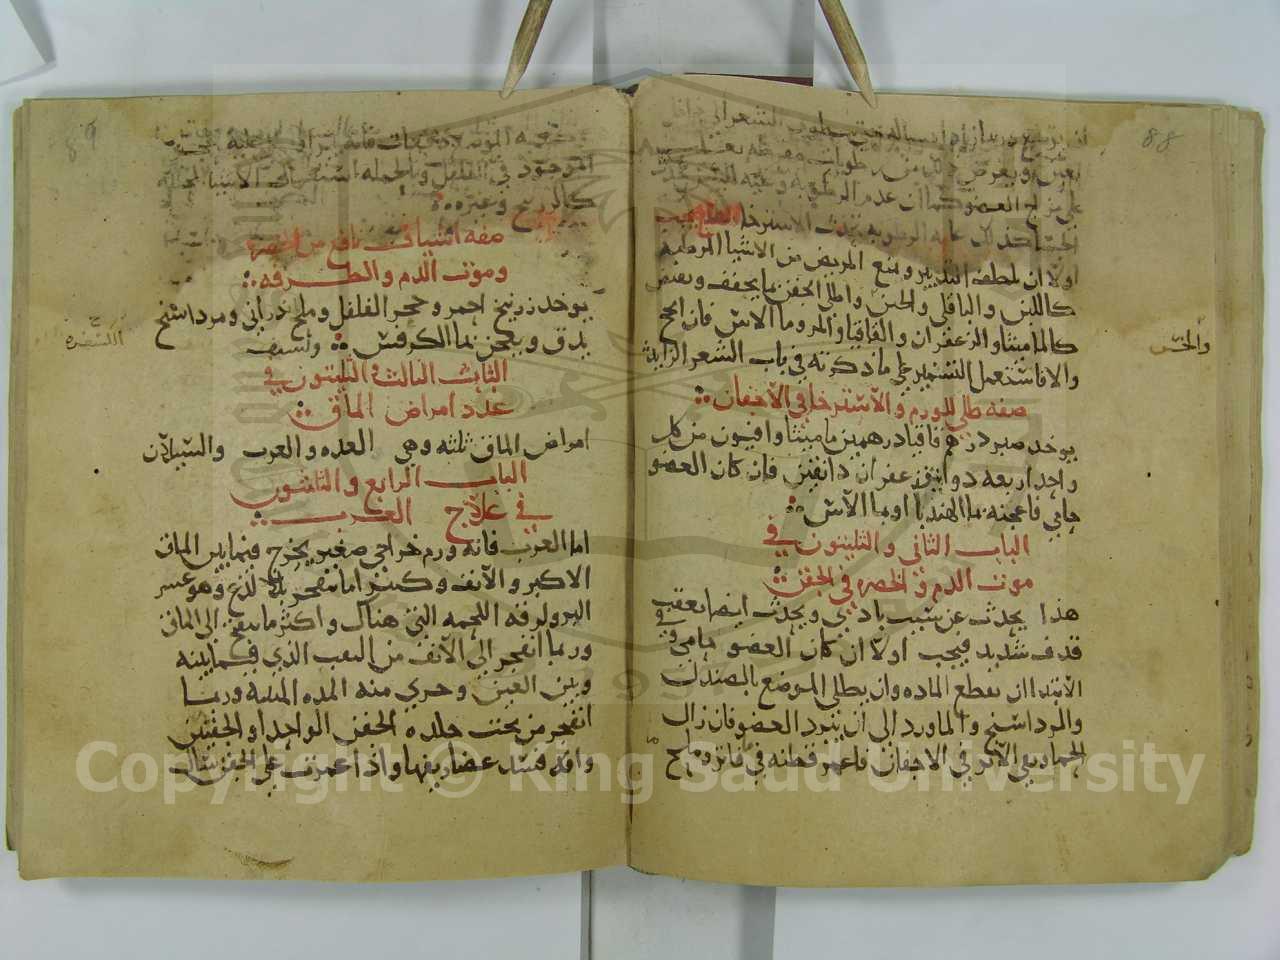 88
اولا ان يلطف التدبير ويمنع المريض من الاشيا المرطبه
كاللبن والباقلى والجبن واطلى الجفن بما يجفف ويقبض
كالماميثا والزعفران والقاقيا والمر وما الاس فان انجح
والا فاستعمل التشمير على ما ذكرته في باب الشعر الزايد
والخس
صفه طلى للورم والاسترخا في الاجفان
يوخد صبر درهم قاقيا درهمين ماميثا وافيون من كل
واحد اربعه دوانيق زعفران دانقين فان كان العضو
حامي فاعجنه بما الهندبا او بما الآس
الباب الثاني والثلثون في
موت الدم والخضره في الجفن
هذا يحدث عن سبب بادي ويحدث ايضا بعقب
قذف شديد فيجب اولا ان كان العضو حامي وفي
الابتدا ان يقطع الماده وان يطلى الموضع بالصندل
والمرداسنج والماورد الى ان يبرد العضو فان زال
الحما وبقي الآثر في الاجفان فاغمر قطنه في فاتر وملح
89
الموجود في الفلفل وبالجمله استعمل الاشيا المحلله
كالزرنيخ وغيره
صفه اشياف نافع من الخضره
وموت الدم والطرفه
يوخد زرنيخ احمر وحجر الفلفل وملح دراني ومرداسنج
يدق ويعجن بما الكرفس ويشيف
الكسفره
الباب الثالث والثلثون في
عدد امراض الماق
امراض الماق ثلثه وهي الغده والغرب والسيلان
الباب الرابع والثلثون
في علاج الغرب
اما الغرب فانه ورم خراجي صغير يخرج فيما بين الماق
الاكبر والآنف وكثيرا ما ينفجر بلا لذع وهو عسر
البرو لرقه اللحمه التي هناك واكثر ما ينفجر الى الماق
وربما انفجر الى الآنف من الثقب الذي فيما بينه
وبين العين وجري منه المده المنتنه وربما
انفجر من تحت جلده الجفن الواحد او الجفنين
وافه فتفسد غضاريفها واذا غمرت على الجفن سال
Copyright © King Saud University